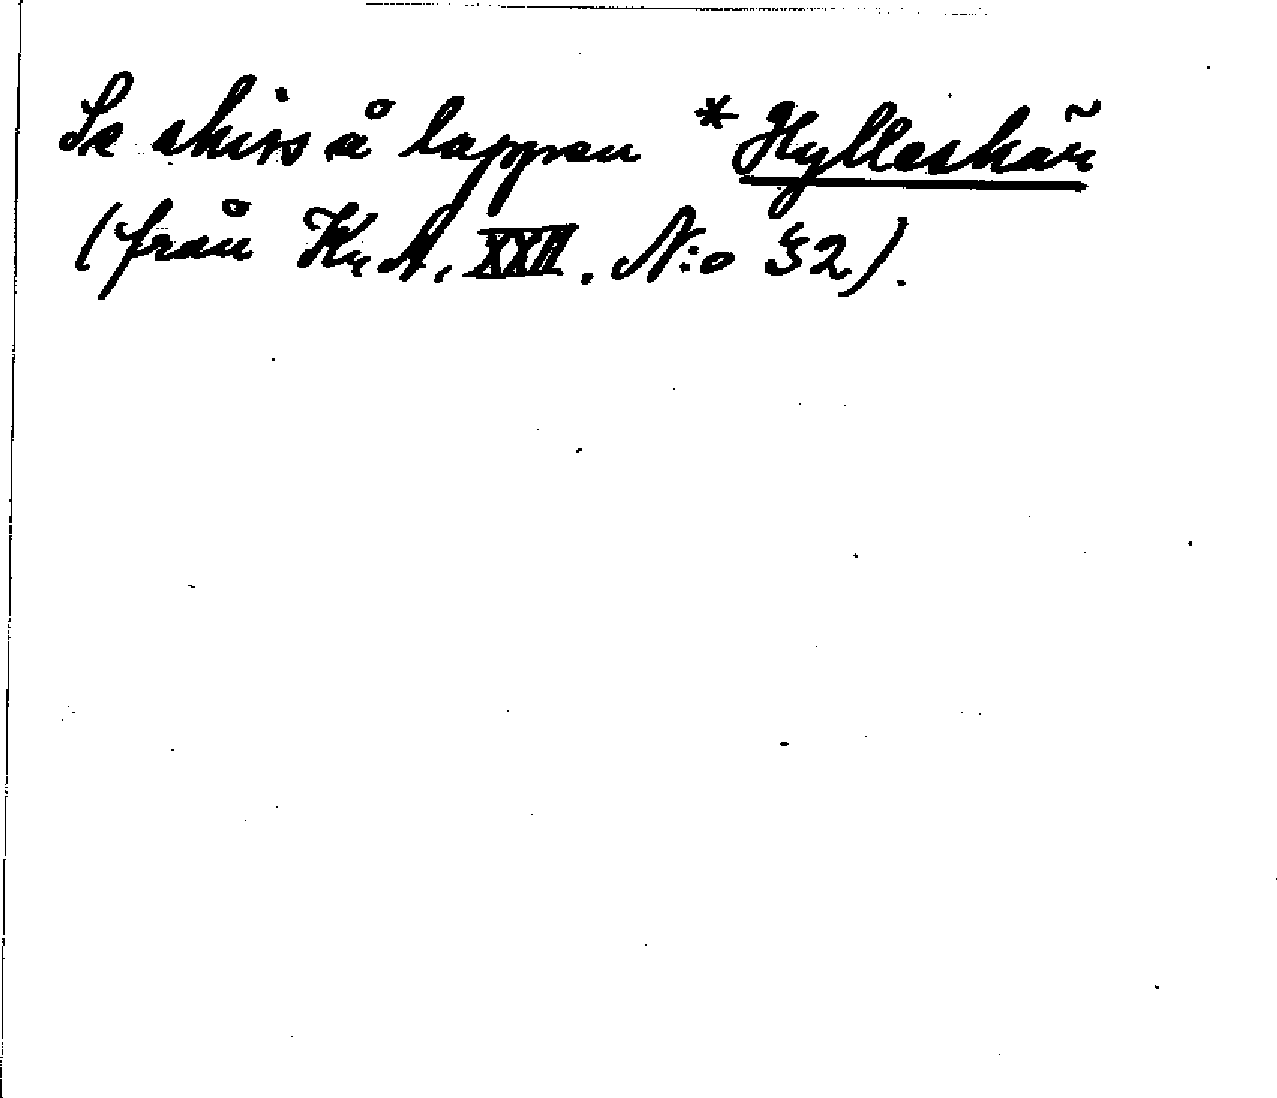 Se skiss å lappen *Hylleskär
(från Ky A. XXII. N:o 52).